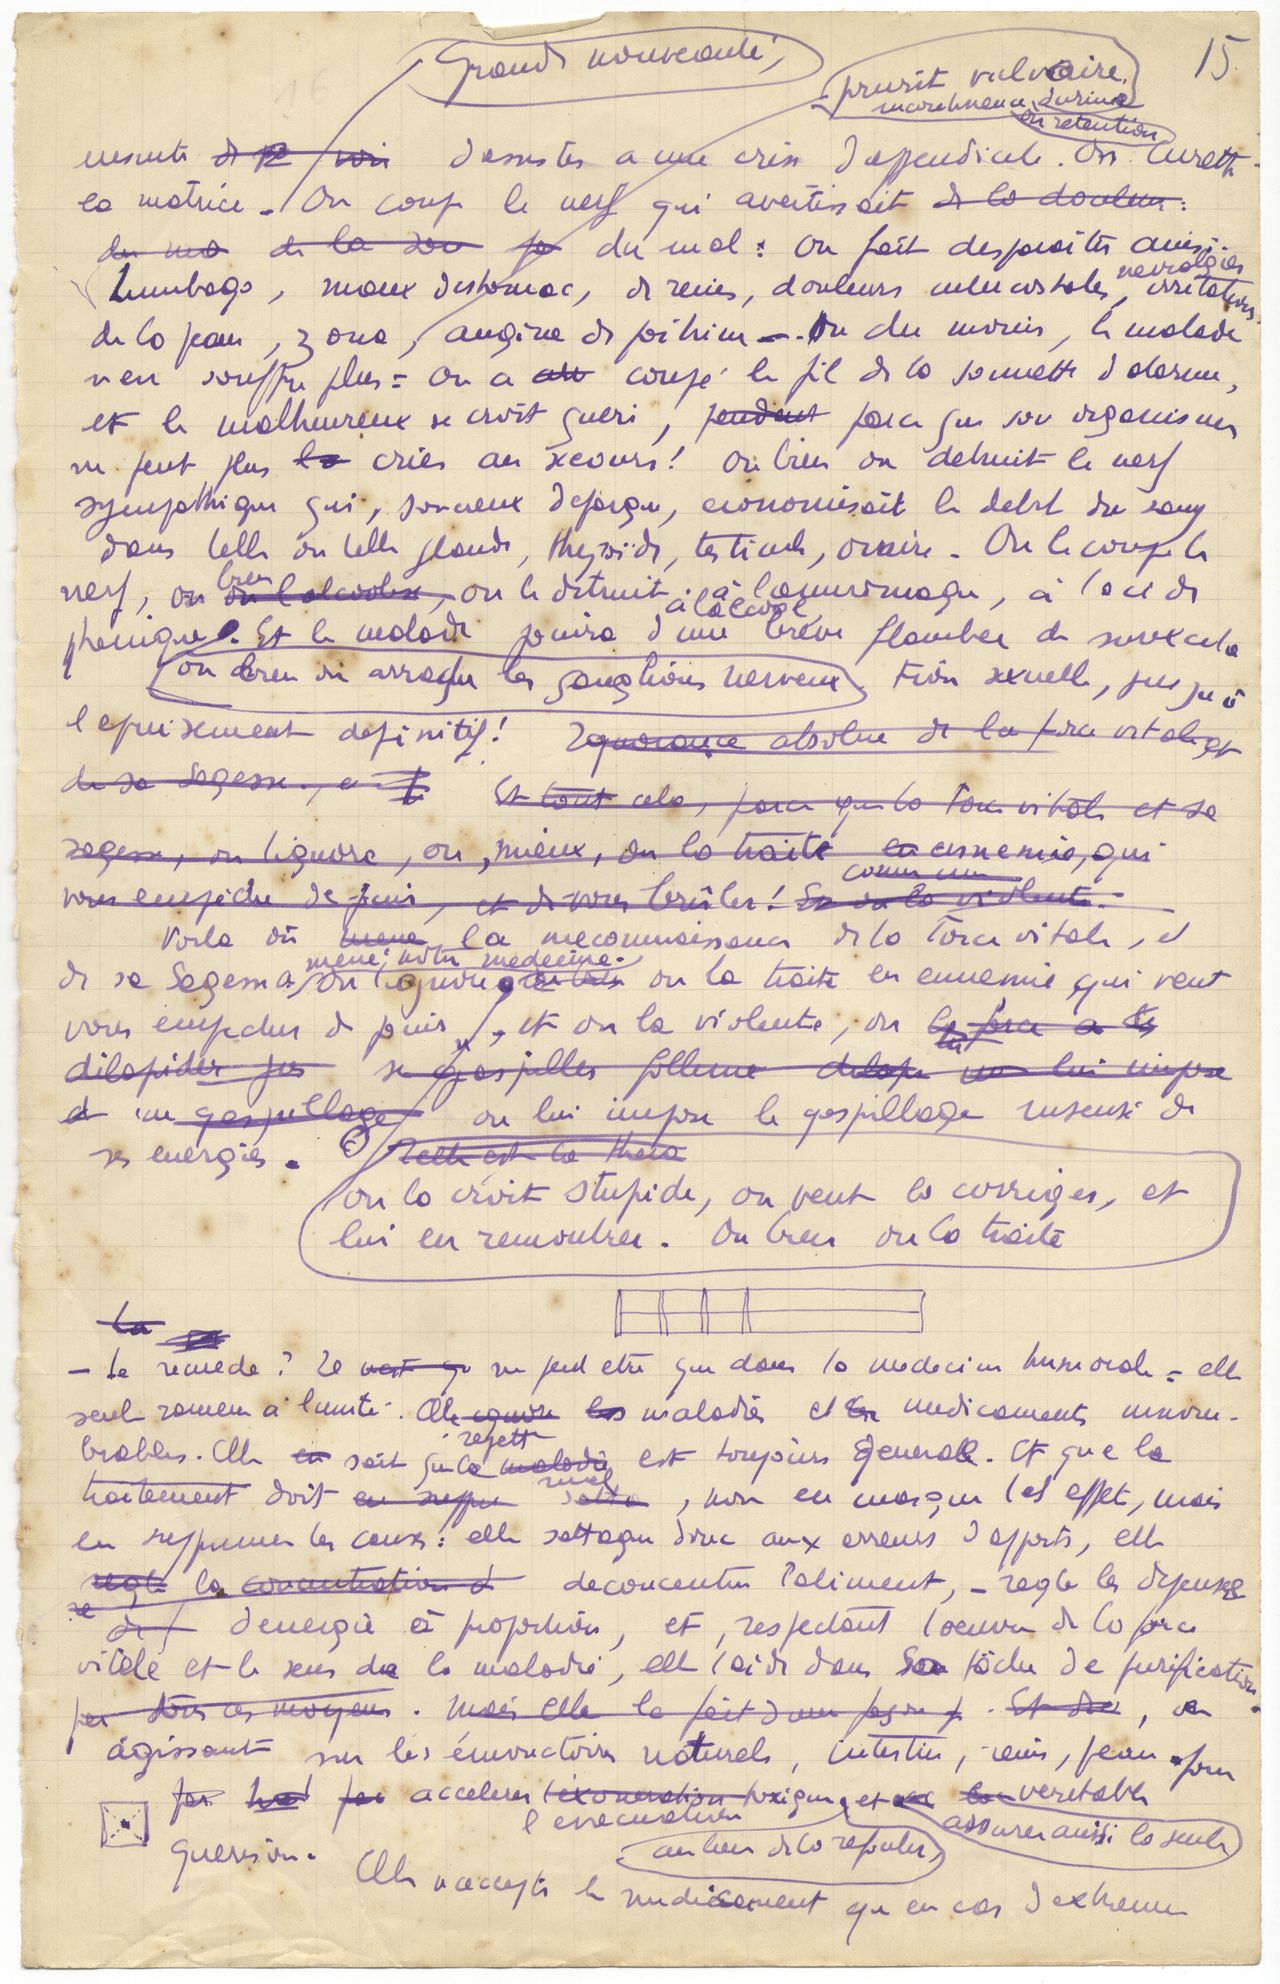 15
Grande nouveauté,
prurit vulvaire
incontinence d'urine
ou retention
d'assister a une crise d'appendicite. On curette
la matrice. On coupe le nerf qui avertissait de la douleur:
du ma de la dou du mal: on fait disparaitre ainsi
Lumbago, maux d'estomac, de reins, douleurs intercostales, nevralgies irritations
de la peau, zona, angine de poitrine — Ou du moins, le malade
n'en souffre plus = on a coupé le fil de la sonnette d'alarme,
et le malheureux se croit gueri, pendant parce que son organisme
ne peut plus crier au secours! ou bien on detruit le nerf
sympathique qui, soucieux d'epargne, economisait le debit du sang
dans telle ou telle glande, thyroïde, testicule, ovaire. On le coupe le
nerf, ou bien on l'alcoolise, on le detruit à l'ammoniaque, à l'acide
à l'alcool
phenique. Et le malade jouira d'une brève flambee de surexcita
ou bien on arrache les ganglions nerveux tion sexuelle, jusqu'à
l'epuisement definitif! Ignorance absolue de la force vitale et
de sa sagesse, et Et tout cela, parce que la force vitale et sa
sagesse, on l'ignore, ou, mieux, on la traite en ennemie, qui
comme une
vous empeche de jouir, et de vous bruler! on la violente.
Voila où mene la meconnaissance de la force vitale, et
mene notre medecine.
de sa sagesse. on l'ignore ou bien on la traite en ennemie qui veut
vous empecher de jouir, et on la violente, on la force a
dilapider ses se gaspiller follement dilap on lui impose
un gaspillage on lui impose le gaspillage insensé de
ses energies. Telle est la
on la croit stupide, on veut la corriger, et
lui en remontrer. Ou bien on la traite
La
— Le remede? Il n'est qu ne peut etre que dans la medecine humorale = elle
seule ramene à l'unité. Elle ignore les maladies et les medicaments innom-
rejette
brables. Elle sait que la maladie est toujours generale. Et que le
traitement doit en suppr viser, non en masquer les effets, mais
en supprimer les causes: elle s'attaque donc aux erreurs d'apports, elle
regle la concentration d deconcentre l'aliment, — regle les depenses
d'energie à proportion, et, respectant l'oeuvre de la force
vitale et le sens de la maladie, elle l'aide dans sa tâche de purification
par tous ces moyens. Mais elle le fait d'une façon, en
agissant sur les émonctoires naturels, intestin, reins, peau, pour
accelerer l'exoneration toxique, et veritable
l'evacuation
au lieu de la refouler,
assurer aussi la seule
guerison.
Elle n'accepte le medicament qu'en cas d'extreme